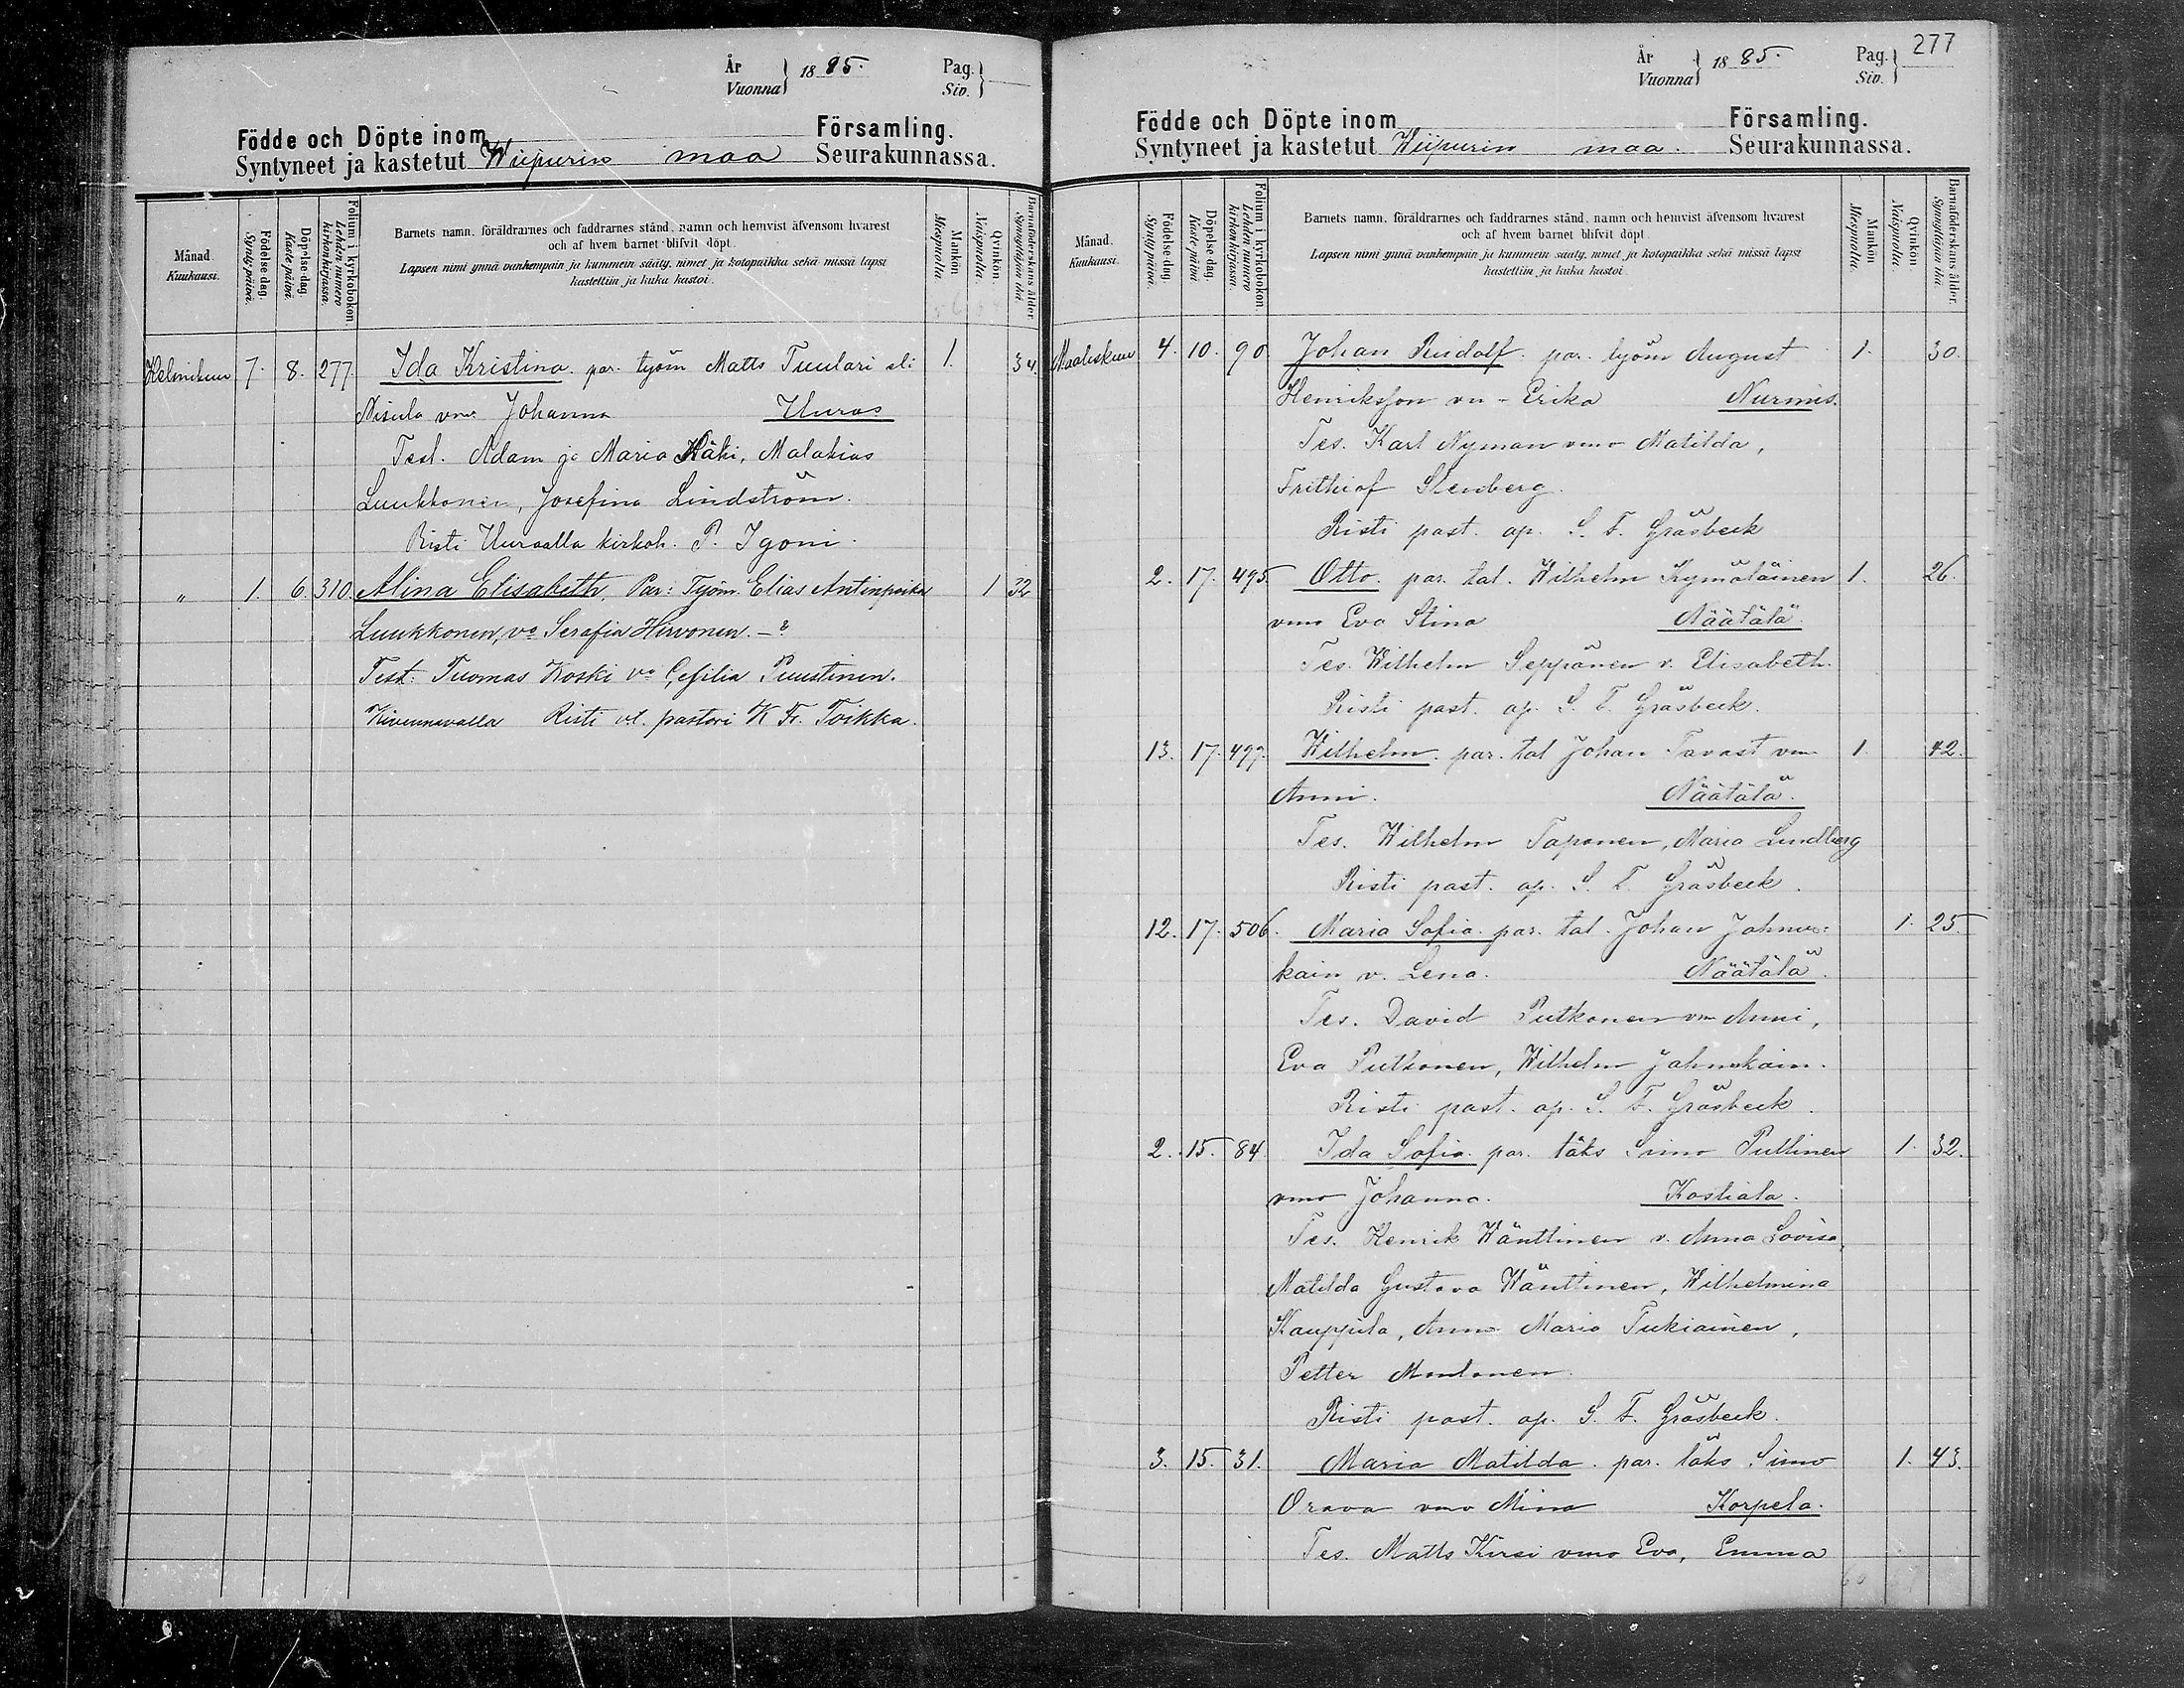 År
Vuonna
1885.
Pag.
Siv.
Födde och Döpte inom Församling.
Syntyneet ja kastetut Wiipurin maa Seurakunnassa.
Månad.
Kuukausi.
Födelse dag.
Synty päivä.
Döpelse dag.
Kaste päivä.
Folium i kyrkobokon.
Lehden numero kirkonkirjassa.
Barnets namn, föräldrarnes och faddrarnes stånd, namn och hemvist äfvensom hvarest
och af hvem barnet blifvit döpt.
Lapsen nimi ynnä vanhempain ja kummein sääty, nimet ja kotopaikka sekä missä lapsi
kastettiin ja kuka kastoi.
Mankön.
Miespuolia.
Qvinkön.
Naispuolia.
Barnaföderskans ålder.
Synnyttäjän ikä.
Helmikuu 7. 8. 277. Ida Kristina. par. työm Matts Tuulari eli 1. 34.
Nisula vmo Johanna Uuras
Test. Adam ja Maria Käki, Malakias
Luukkonen, Josefina Lindström.
Risti Uuraalla kirkoh. P. Igoni.
" 1. 6. 310. Alina Elisabeth, Par: Työm. Elias Antinpoika 1 32
Luukkonen, vo Serafia Hirvonen. - ?
Test: Tuomas Koski vo Cefilia Puustinen.
Kivennavalla Risti vt. pastori K Fr. Toikka.
År
Vuonna
1885.
Pag.
Siv.
277
Födde och Döpte inom Församling.
Syntyneet ja kastetut Wiipurin maa. Seurakunnassa.
Månad.
Kuukausi.
Födelse dag.
Synty päivä.
Döpelse dag.
Kaste päivä.
Folium i kyrkobokon.
Lehden numero kirkonkirjassa.
Barnets namn, föräldrarnes och faddrarnes stånd, namn och hemvist äfvensom hvarest
och af hvem barnet blifvit döpt.
Lapsen nimi ynnä vanhempain ja kummein sääty, nimet ja kotopaikka sekä missä lapsi
kastettiin ja kuka kastoi.
Mankön
Miespuolia.
Qvinkön
Naispuolia.
Barnaföderskans ålder.
Synnyttäjän ikä
Maaliskuu 4. 10. 90 Johan Rudolf. par. työm August 1. 30.
Henriksson vm - Erika Nurmis.
Tes. Karl Nyman vmo Matilda,
Frithiof Stenberg.
Risti past. ap. S. F. Gräsbeck
2. 17. 495. Otto. par. tal. Wilhelm Kymäläinen 1. 26.
vmo Eva Stina Näätälä.
Tes. Wilhelm Seppänen v. Elisabeth.
Risti past. ap. S. F. Gräsbeck.
13. 17. 497. Wilhelm. par. tal Johan Tavast vm 1. 42.
Anni. Näätälä.
Tes. Wilhelm Taponen, Maria Lundberg
Risti past. ap. S. F. Gräsbeck.
12. 17. 506. Maria Sofia. par. tal. Johan Jahnus: 1. 25.
kain v. Lena. Näätälä.
Tes. David Putkonen vm Anni,
Eva Putkonen, Wilhelm Jahnukain.
Risti past. ap. S. F. Gräsbeck.
2. 15. 84. Ida Sofia. par. täks Simo Pullinen 1. 32.
vmo Johanna. Kostiala.
Tes. Henrik Wänttinen v. Anna Lovisa,
Matilda Gustava Wänttinen, Wilhelmina
Kauppila, Anna Maria Tukiainen,
Petter
Risti past. ap. S. F. Gräsbeck.
3. 15. 31. Maria Matilda. par. läks Simo 1. 43.
Orava vmo Mina Korpela.
Tes. Matts Kirsi vmo Eva, Emma